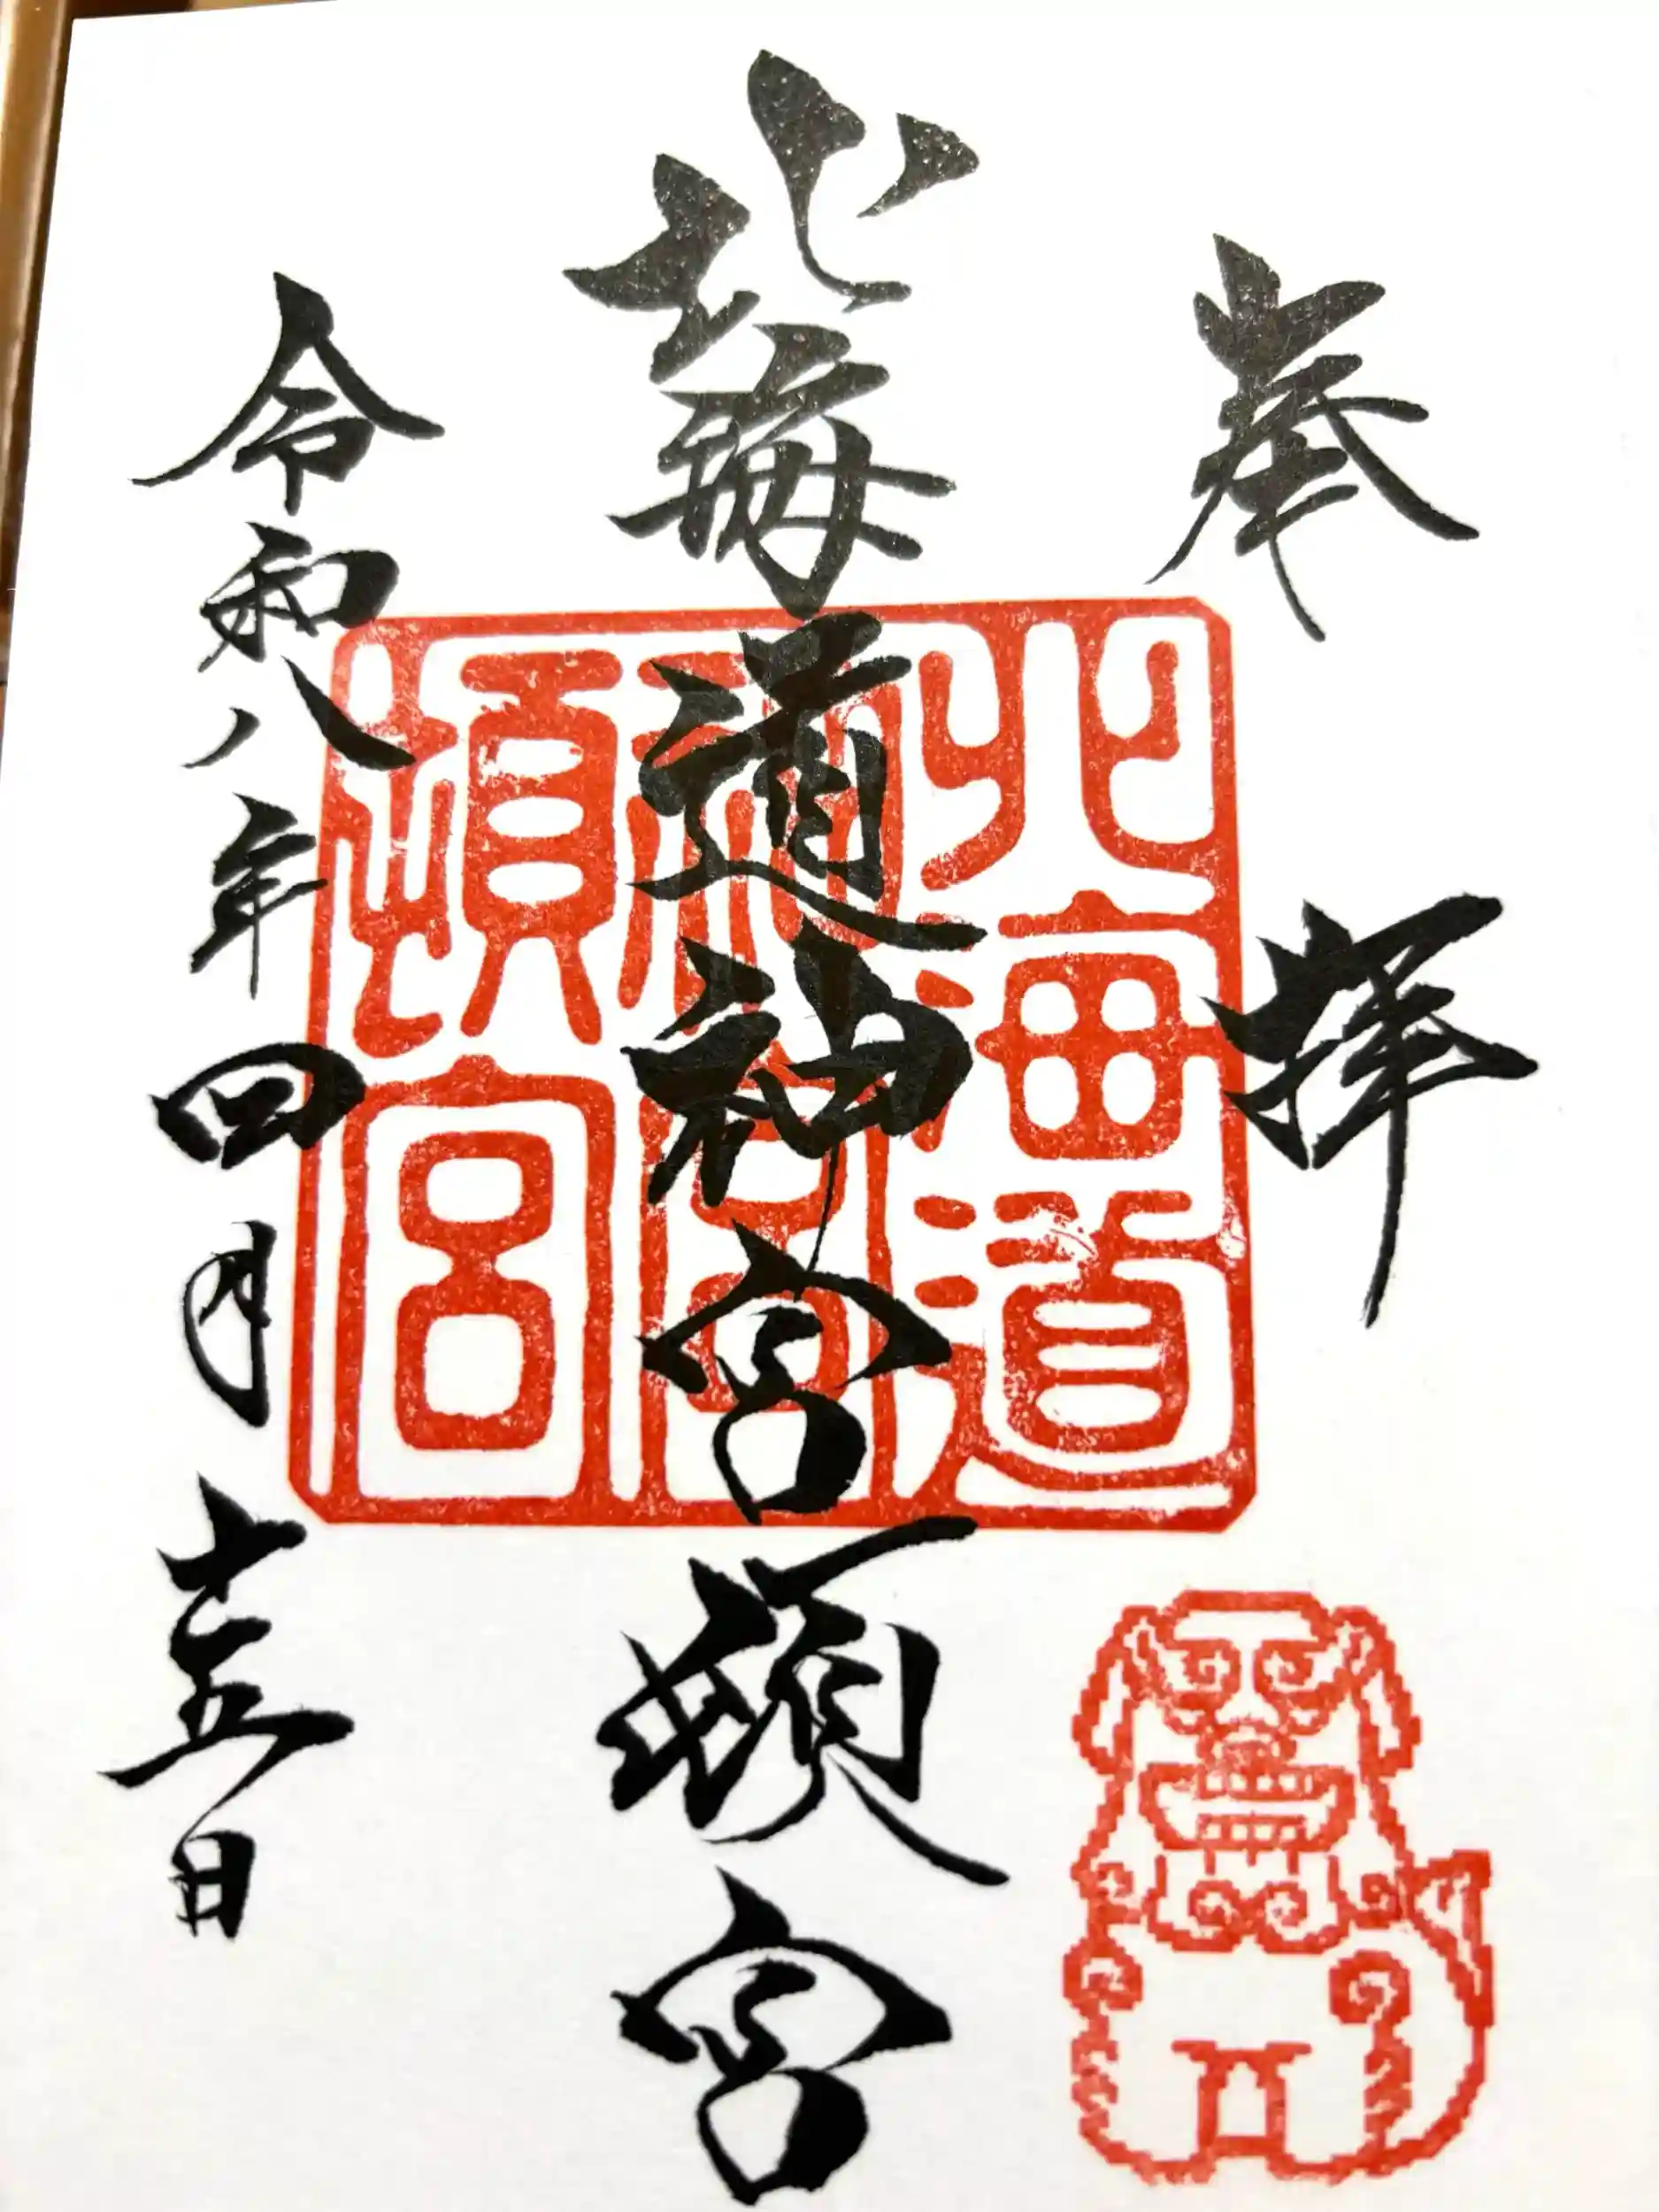 奉拝
北海道神宮頓宮
令和八年四月十五日
北海道
神宮
頓宮